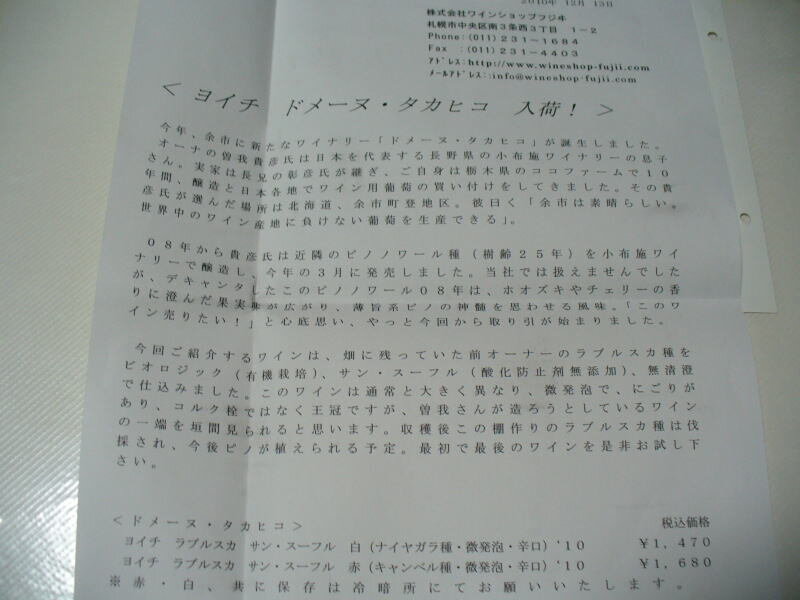 2010年 12月 13日
株式会社ワインショップフジヰ
札幌市中央区南3条西3丁目 1-2
Phone:(011)231-1684
Fax :(011)231-4403
ｱﾄﾞﾚｽ:http://www.wineshop-fujii.com
ﾒｰﾙｱﾄﾞﾚｽ::info@wineshop-fujii.com
＜ ヨイチ ドメーヌ・タカヒコ 入荷！ ＞
今年、余市に新たなワイナリー「ドメーヌ・タカヒコ」が誕生しました。
オーナの曽我貴彦氏は日本を代表する長野県の小布施ワイナリーの息子
さん。実家は長兄の彰彦氏が継ぎ、ご自身は栃木県のココファームで10
年間、醸造と日本各地でワイン用葡萄の買い付けをしてきました。その貴
彦氏が選んだ場所は北海道、余市町登地区。彼曰く「余市は素晴らしい。
世界中のワイン産地に負けない葡萄を生産できる」。
08年から貴彦氏は近隣のピノノワール種（樹齢25年）を小布施ワイ
ナリーで醸造し、今年の3月に発売しました。当社では扱えませんでした
が、デキャンタしたこのピノノワール08年は、ホオズキやチェリーの香
りに澄んだ果実味が広がり、薄旨系ピノの神髄を思わせる風味。「このワ
イン売りたい！」と心底思い、やっと今回から取り引が始まりました。
今回ご紹介するワインは、畑に残っていた前オーナーのラブルスカ種を
ビオロジック（有機栽培）、サン・スーフル（酸化防止剤無添加）、無清澄
で仕込みました。このワインは通常と大きく異なり、微発泡で、にごりが
あり、コルク栓ではなく王冠ですが、曽我さんが造ろうとしているワイン
の一端を垣間見られると思います。収穫後この棚作りのラブルスカ種は伐
採され、今後ピノが植えられる予定。最初で最後のワインを是非お試し下
さい。
＜ドメーヌ・タカヒコ＞ 税込価格
ヨイチ ラブルスカ サン・スーフル 白（ナイヤガラ種・微発泡・辛口）'10 ￥1,470
ヨイチ ラブルスカ サン・スーフル 赤（キャンベル種・微発泡・辛口）'10 ￥1,680
※赤・白、共に保存は冷暗所にてお願いいたします。